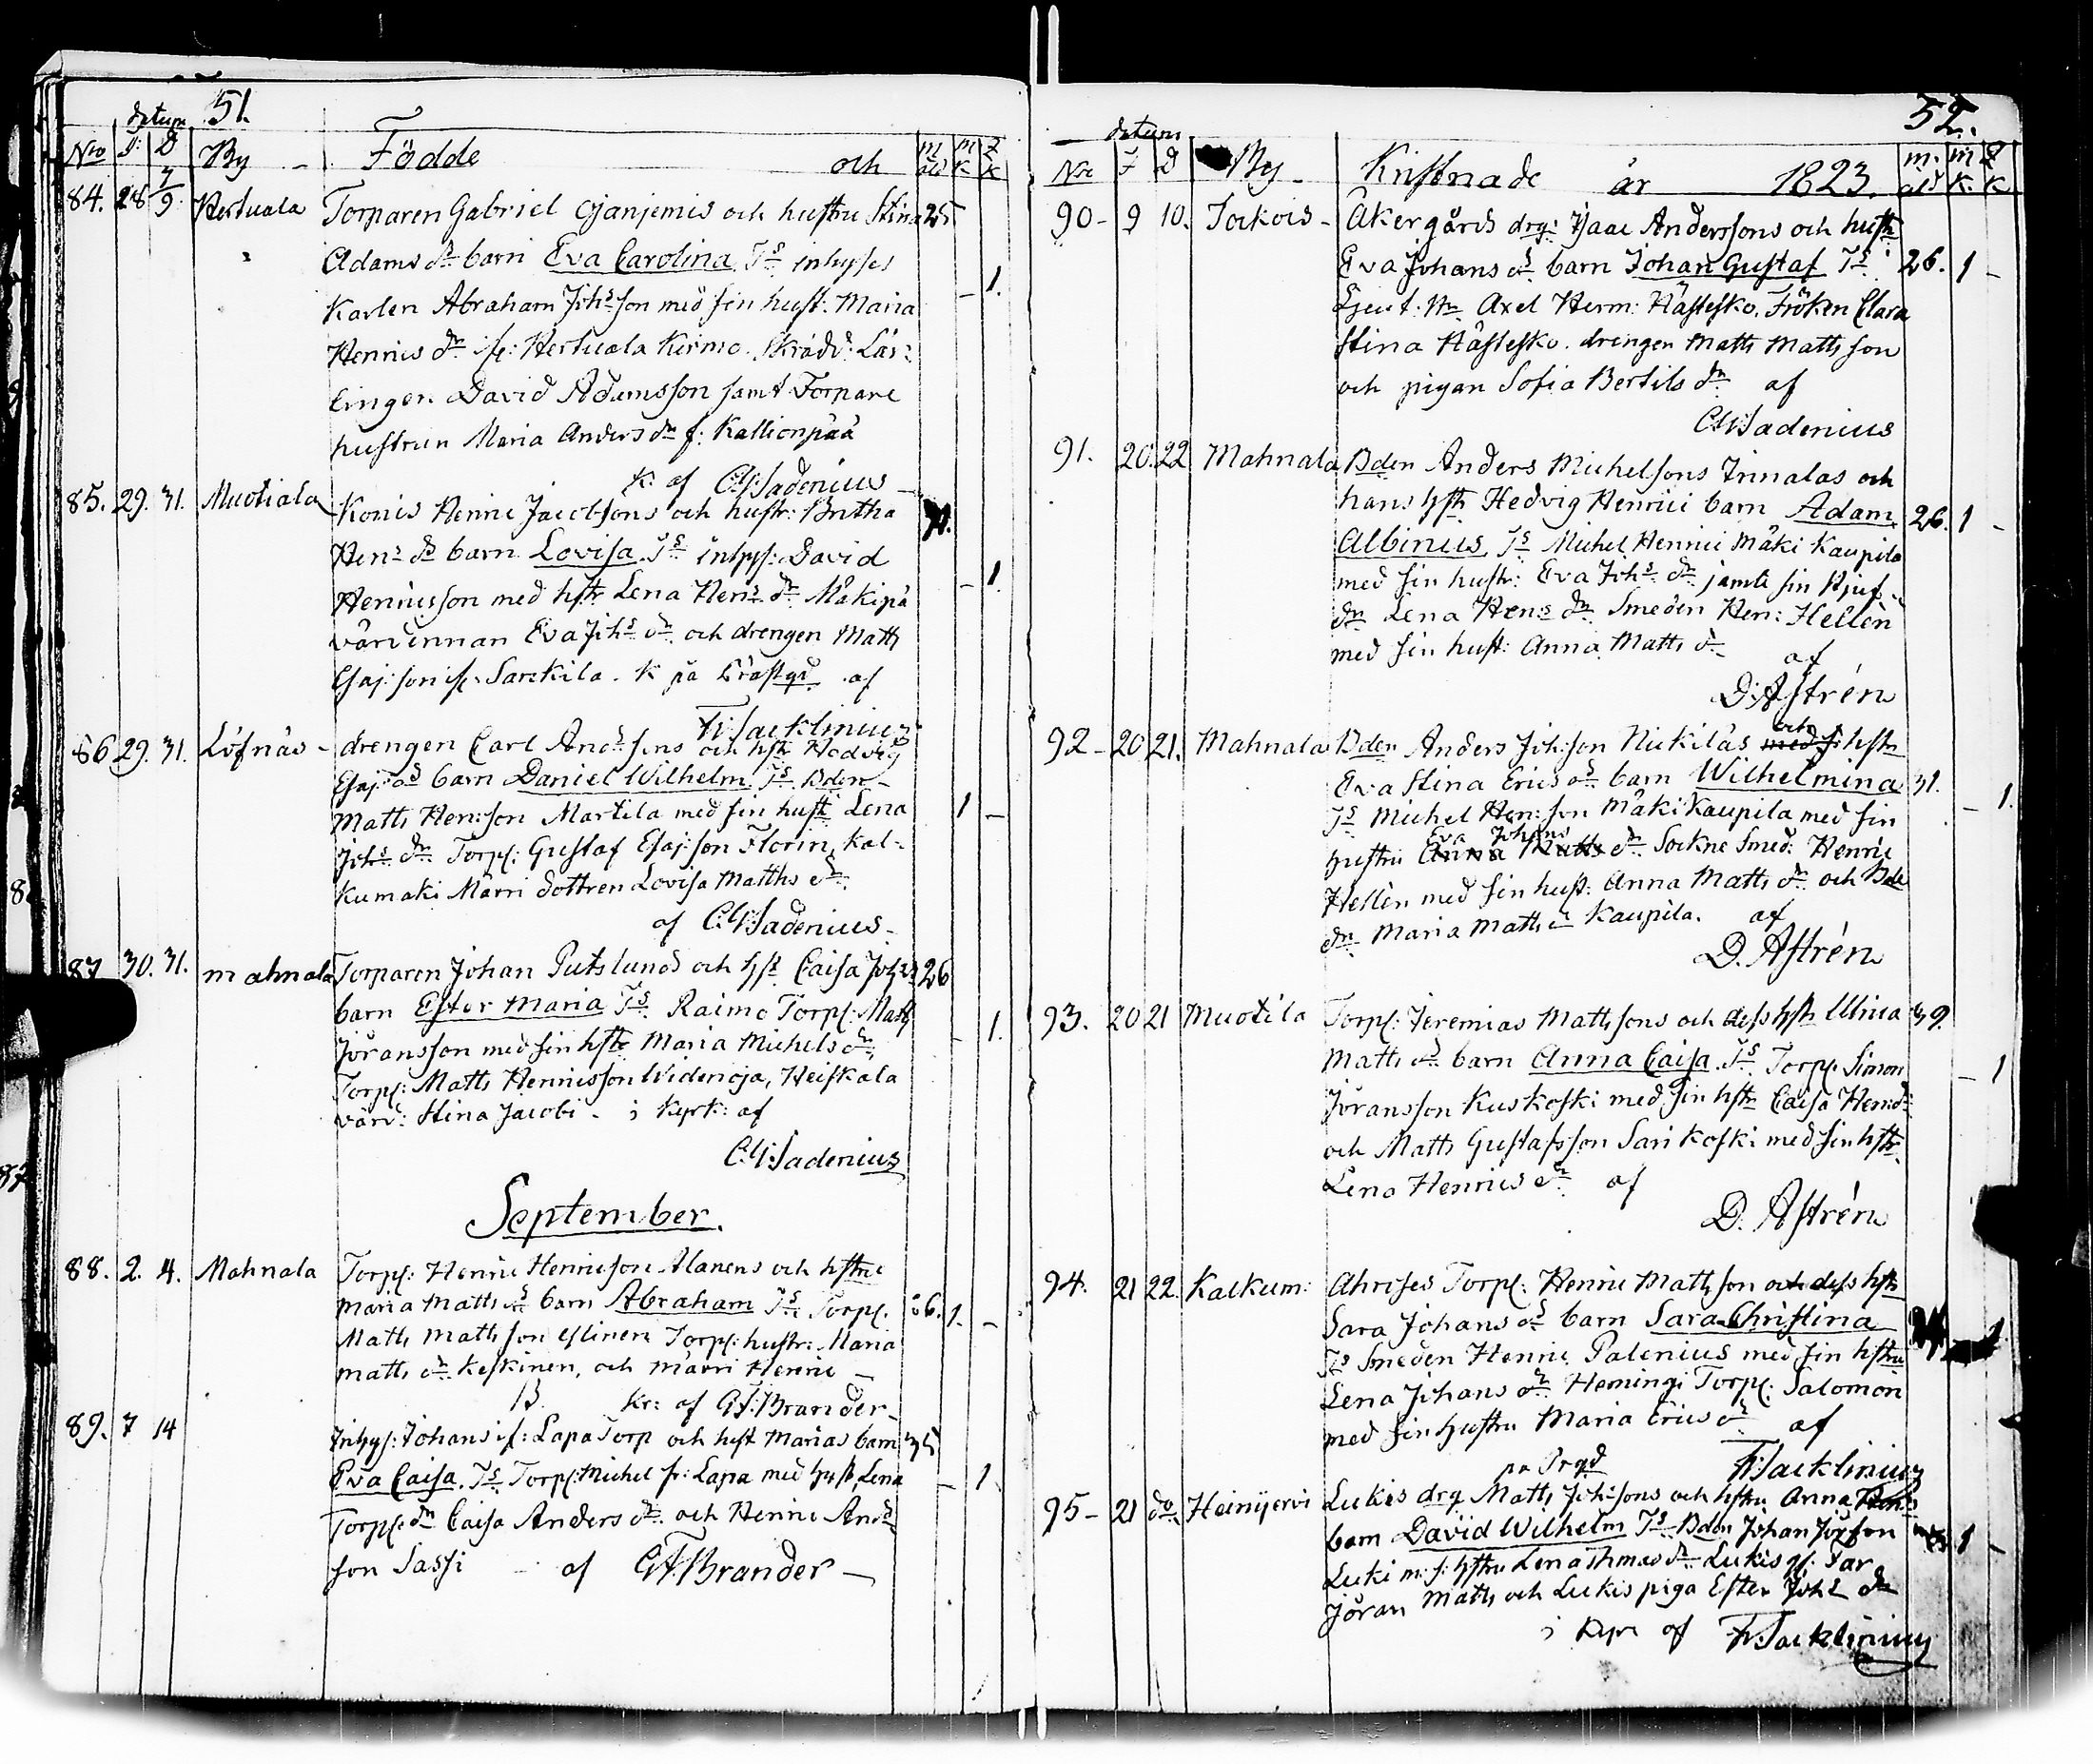 datum 51.
Nro F: D By Födde och m åld m K. q K
84. 28 7/9 Hertuala Torparen Gabriel Ojanjemis och hustru Stina 25
Adams dr barn Eva Carolina. Ts inhyses
Karlen Abraham Johsson med sin hust: Maria – 1.
Henrics dr Hertuala Kirmo. Skrädd: Lär-
lingen David Adamsson samt Torpare
hustrun Maria Anders dr f: Kallionpää
K. af C.G. Sadenius
85. 29. 31. Muotiala Konis Henric Jacobssons och hustr: Britha
Hens ds barn Lovisa Ts inhys: David
Henricsson med hstr Lena Hens dr Mäkipä – 1.
värdinnan Eva Johs dr och drengen Matts
Esaj:son Sarckila. K på Prästgd af
Fr: Jacklinius
86 29. 31. Löfnäs - drengen Carl Ands sons och hstr Hedvig
Esaj ds barn Daniel Wilhelm Ts Bden
Matts Hen:son Martila med sin hustr Lena 1 –
Johs dr Torp: Gustaf Esaj:son Florin, Kal-
kumaki Mårri dottren Lovisa Matths dr
af C.G. Sadenius
87 30. 31. Mahnala Torparen Johan Putslunds och hst Caisa Johs 26
barn Ester Maria Ts Raimo Torp: Matts
Jöransson med sin hstr Maria Michels dr – 1.
Torp: Matts Henricsson Widenoja, Heiskala
värd: Stina Jacobi - i Kyrk: af
C.G. Sadenius
September.
88. 2. 4. Mahnala Torp: Henric Henricsson Alanens och hstru
Maria Matts ds barn Abraham Ts Torp. 26. 1. –
Matts Mattsson Torp: hustr: Maria
Matts dr Keskinen, och Mårri Henric
B. kr: af G.F. Brander
89. 7 14 Inhys: Johans Lapa Torp och hust Marias barn 35
Eva Caisa. Ts Torp: Michel fr: Lapa med hust, Lena – 1
Torp: dr Caisa Anders dr och Henric Ands
son Sassi af G.F. Brander –
datum 52.
Nro F D By Kristnade år 1823. m. åld m K. q K
90 - 9 10. Jockois - Åkergårds drg: Isaac Anderssons och hustr
Eva Johans ds barn Johan Gustaf Ts 26. 1 –
Ljeut: Hr Axel Herm: Hästesko. Fröken Clara
Stina Hästesko. drengen Matts Mattsson
och pigan Sofia Bertils dr af
C.G. Sadenius
91. 20. 22 Mahnala Bden Anders Michelsons Innalas och
hans hstr Hedvig Henrici barn Adam 26. 1 –
Albinus Ts Michel Henrici Mäki Kaupila
med sin hustr: Eva Johs dr jämte sin stjuf-
dr Lena Hens dr Smeden Hen: Hellén
med sin hust: Anna Matts dr
af
D. Astrén
92 - 20 21. Mahnala Bden Anders Joh:son Nickiläs med s: och hstr
Eva Stina Erics ds barn Wilhelmina 31. – 1.
Ts Michel Hen:son Mäki Kaupila med sin
hustru Anna Matts Eva Johans dr Sockne Smed: Henric
Hellén med sin hust: Anna Matts dr och Bde
dr Maria Matts dr Kaupila. af
D. Astrén
93. 20 21 Muotila Torp: Jeremias Mattssons och dess hstr Ulrica 39.
Matts ds barn Anna Caisa Ts Torp: Simon – 1
Jöransson Kuskoski med sin hstr Caisa Hen:dr
och Matts Gustafsson Sarikoski med sin hstr
Lena Henrics dr af
D. Astrén
94. 21 22. Kalkum: Ahrises Torp: Henric Mattsson och dess hstr
Sara Johans ds barn Sara Christina 1
Ts Smeden Henric Palenius med sin hstru
Lena Johans dr Hemingi Torp: Salomon
med sin hustru Maria Erics dr af
Fr: Jacklinius
på Prgd
95 - 21 do Heinijervi Lukis drg Matts Johssons och hstru Anna
barn David Wilhelm Ts Bden Johan Jörson 1 –
Luki m: s: hstru Lena Thmas dr Lukis
Jöran Matts och Lukis piga Ester Johs dr
i Kyrc af Fr: Jacklinius